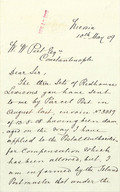 Nicosia
10th May 09
W. W. Peet Esqre
Constantinople
Dear Sir,
The thin Sets of Redhouse
Lexicons you have sent
to me by Parcel Post in
August last, invoice No 2089
of B. H. having been dam-
aged on the way I have
applied to the Postal authorities
for Compensation which
has been allowed, but, I
am informed by the Island
Postmaster that under the